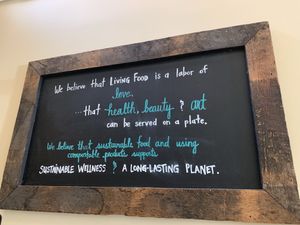 We believe that LIVING FOOD is a labor of
love.
...that health, beauty & art
can be served on a plate.
We believe that sustainable food and using
compostable products supports
SUSTAINABLE WELLNESS & A LONG-LASTING PLANET.